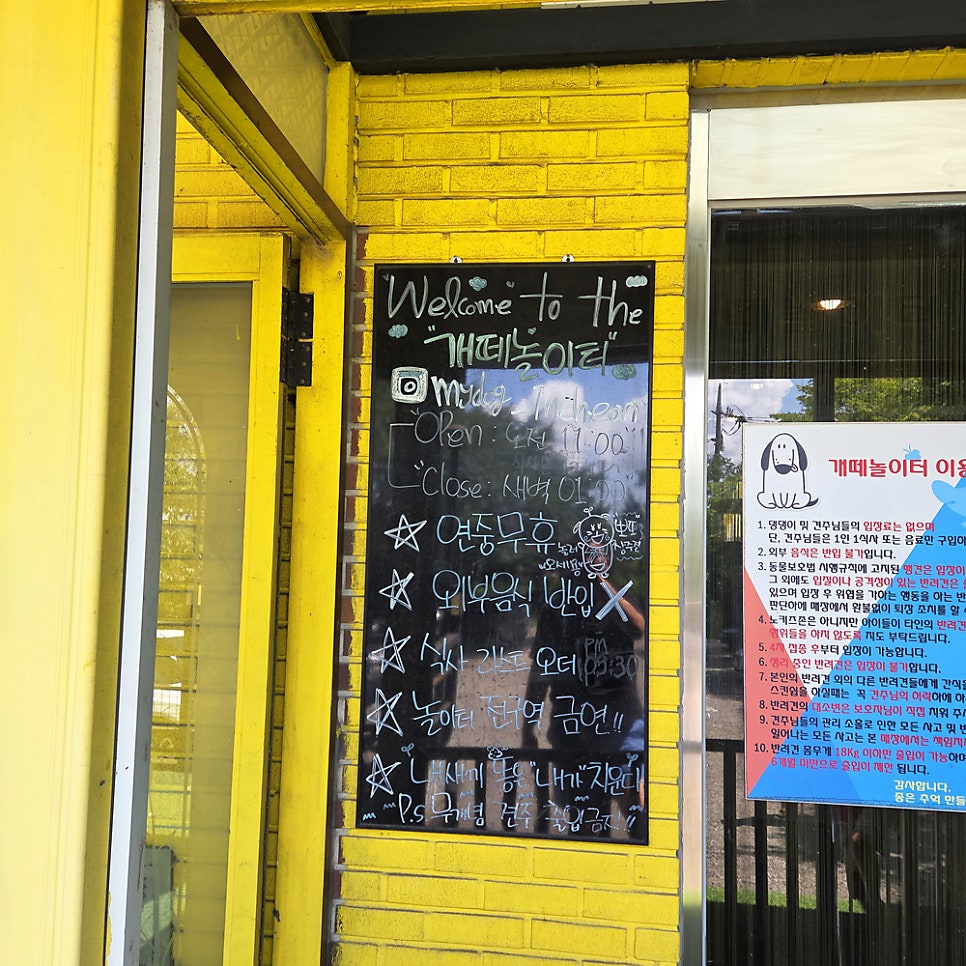 "Welcome" to the
"개떼놀이터"
mydog_incheon
"Open : 오전 11:00"
"Close : 새벽 01:00"
☆ 연중무휴
뽀또
상주견
☆ 외부음식 반입 X
☆ 식사 라스트 오더 PM 09:30
☆ 놀이터 전구역 금연!!
☆ 내새끼 똥은 "내가" 치운다
P.S 무개념 견주 출입금지!!
개떼놀이터 이용
1. 댕댕이 및 견주님들의 입장료는 없으며
단, 견주님들은 1인 1식사 또는 음료만 구입하
2. 외부 음식은 반입 불가입니다.
3. 동물보호법 시행규칙에 고지된 맹견은 입장이
그 외에도 입질이나 공격성이 있는 반려견은
있으며 입장 후 위협을 가하는 행동을 하는 반
판단하에 매장에서 환불없이 퇴장 조치를 할
4. 노키즈존은 아니지만 아이들이 타인의 반려견
행위들을 하지 않도록 지도 부탁드립니다.
5. 4차 접종 후부터 입장이 가능합니다.
6. 생리 중인 반려견은 입장이 불가합니다.
7. 본인의 반려견 외의 다른 반려견들에게 간식을
스킨쉽을 하실때는 꼭 견주님의 허락하에 하
8. 반려견의 대소변은 보호자님이 직접 치워 주시
9. 견주님들의 관리 소홀로 인한 모든 사고 및
일어나는 모든 사고는 본 매장에서는 책임지지
10. 반려견 몸무게 18Kg 이하만 출입이 가능하며
6개월 미만으로 출입이 제한 됩니다.
감사합니다.
좋은 추억 만들